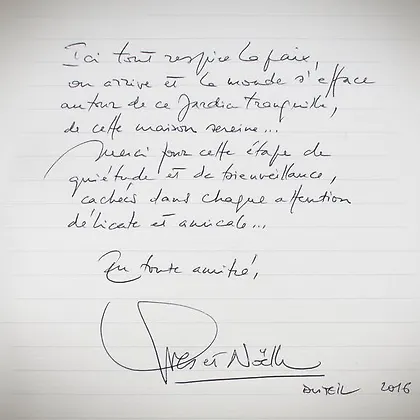 Ici tout respire la paix,
on arrive et le monde s'efface
autour de ce Jardin tranquille,
de cette maison sereine...
Merci pour cette étape de
quiétude et de bienveillance,
cachées dans chaque attention
délicate et amicale...
En toute amitié,
Yves et Noëlle
DUTEIL 2016